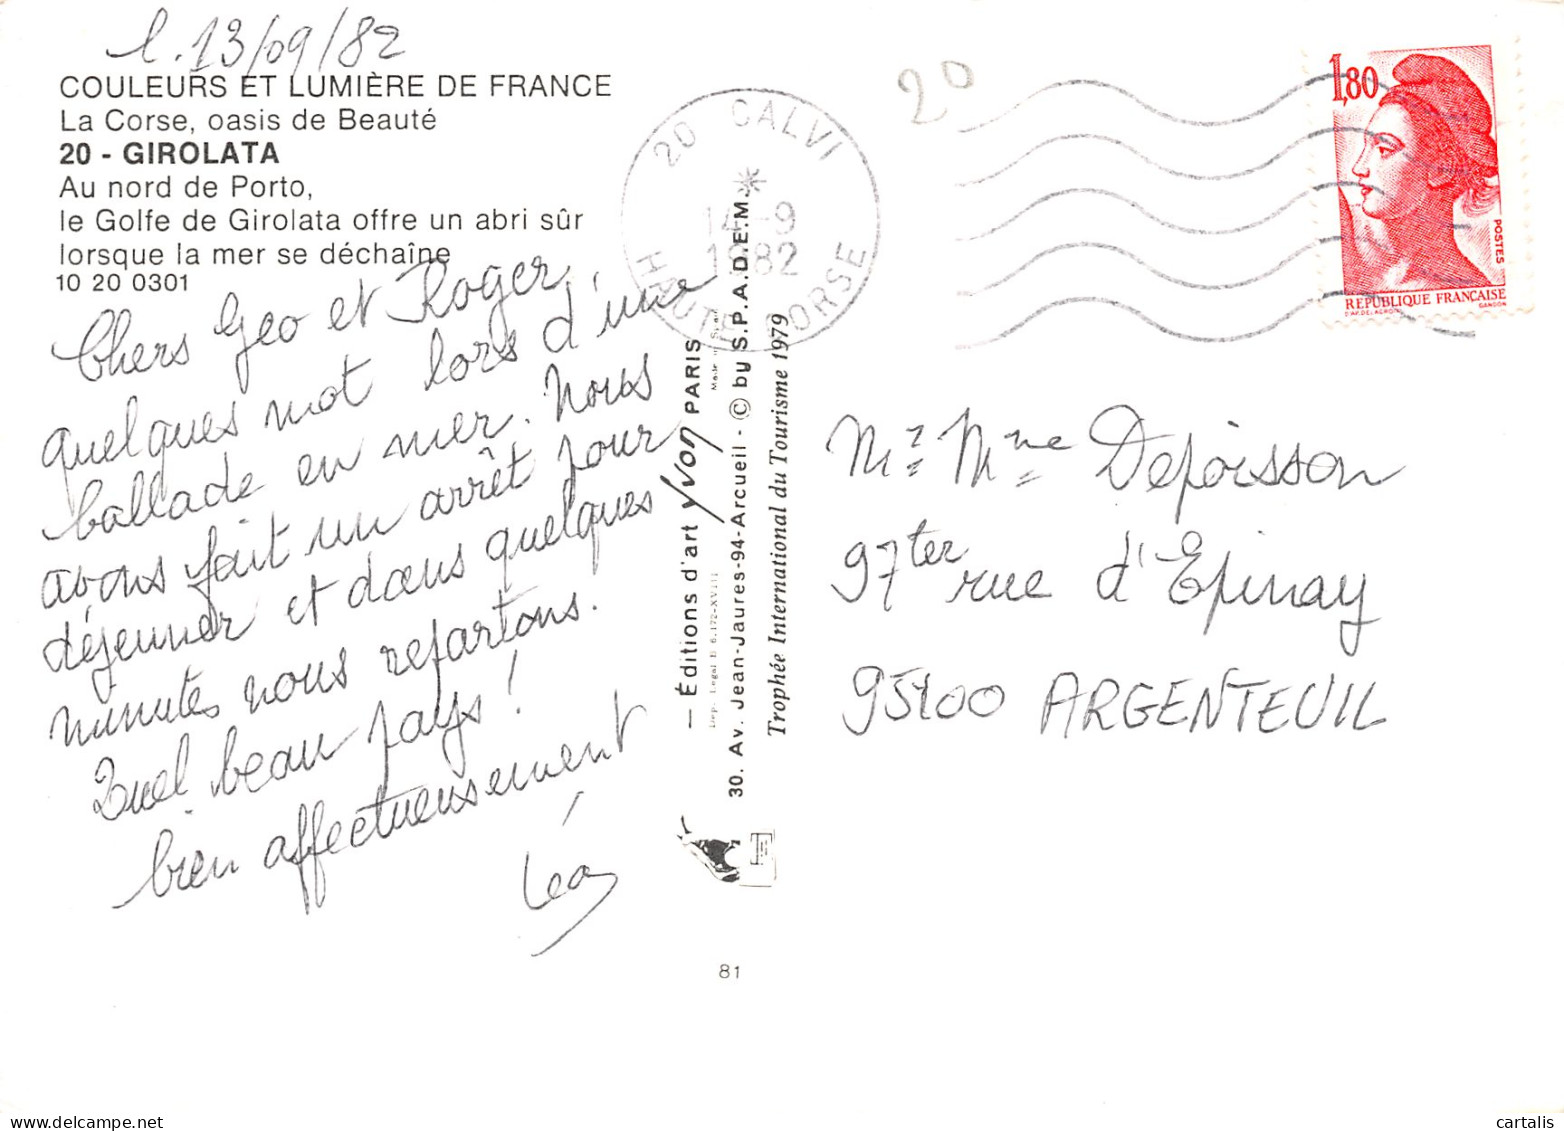 l. 13/09/82
COULEURS ET LUMIÈRE DE FRANCE
La Corse, oasis de Beauté
20 - GIROLATA
Au nord de Porto,
le Golfe de Girolata offre un abri sûr
lorsque la mer se déchaîne
10 20 0301
Chers Geo et Roger,
quelques mot lors d'une
ballade en mer. Nous
avons fait un arrêt pour
déjeuner et dans quelques
minutes nous repartons.
Quel beau pays !
bien affectueusement
Léo
20 CALVI
14-9
1982
HAUTE CORSE
20
1,80
POSTES
REPUBLIQUE FRANÇAISE
D'AP. DELACROIX
GANDON
— Éditions d'art yvon PARIS
Dép. Légal II 6.172-XVIII
30. Av. Jean-Jaures-94-Arcueil - © by S.P.A.D.E.M.
Trophée International du Tourisme 1979
Mr Mme Depoisson
97ter rue d'Epinay
95100 ARGENTEUIL
81
cartalis